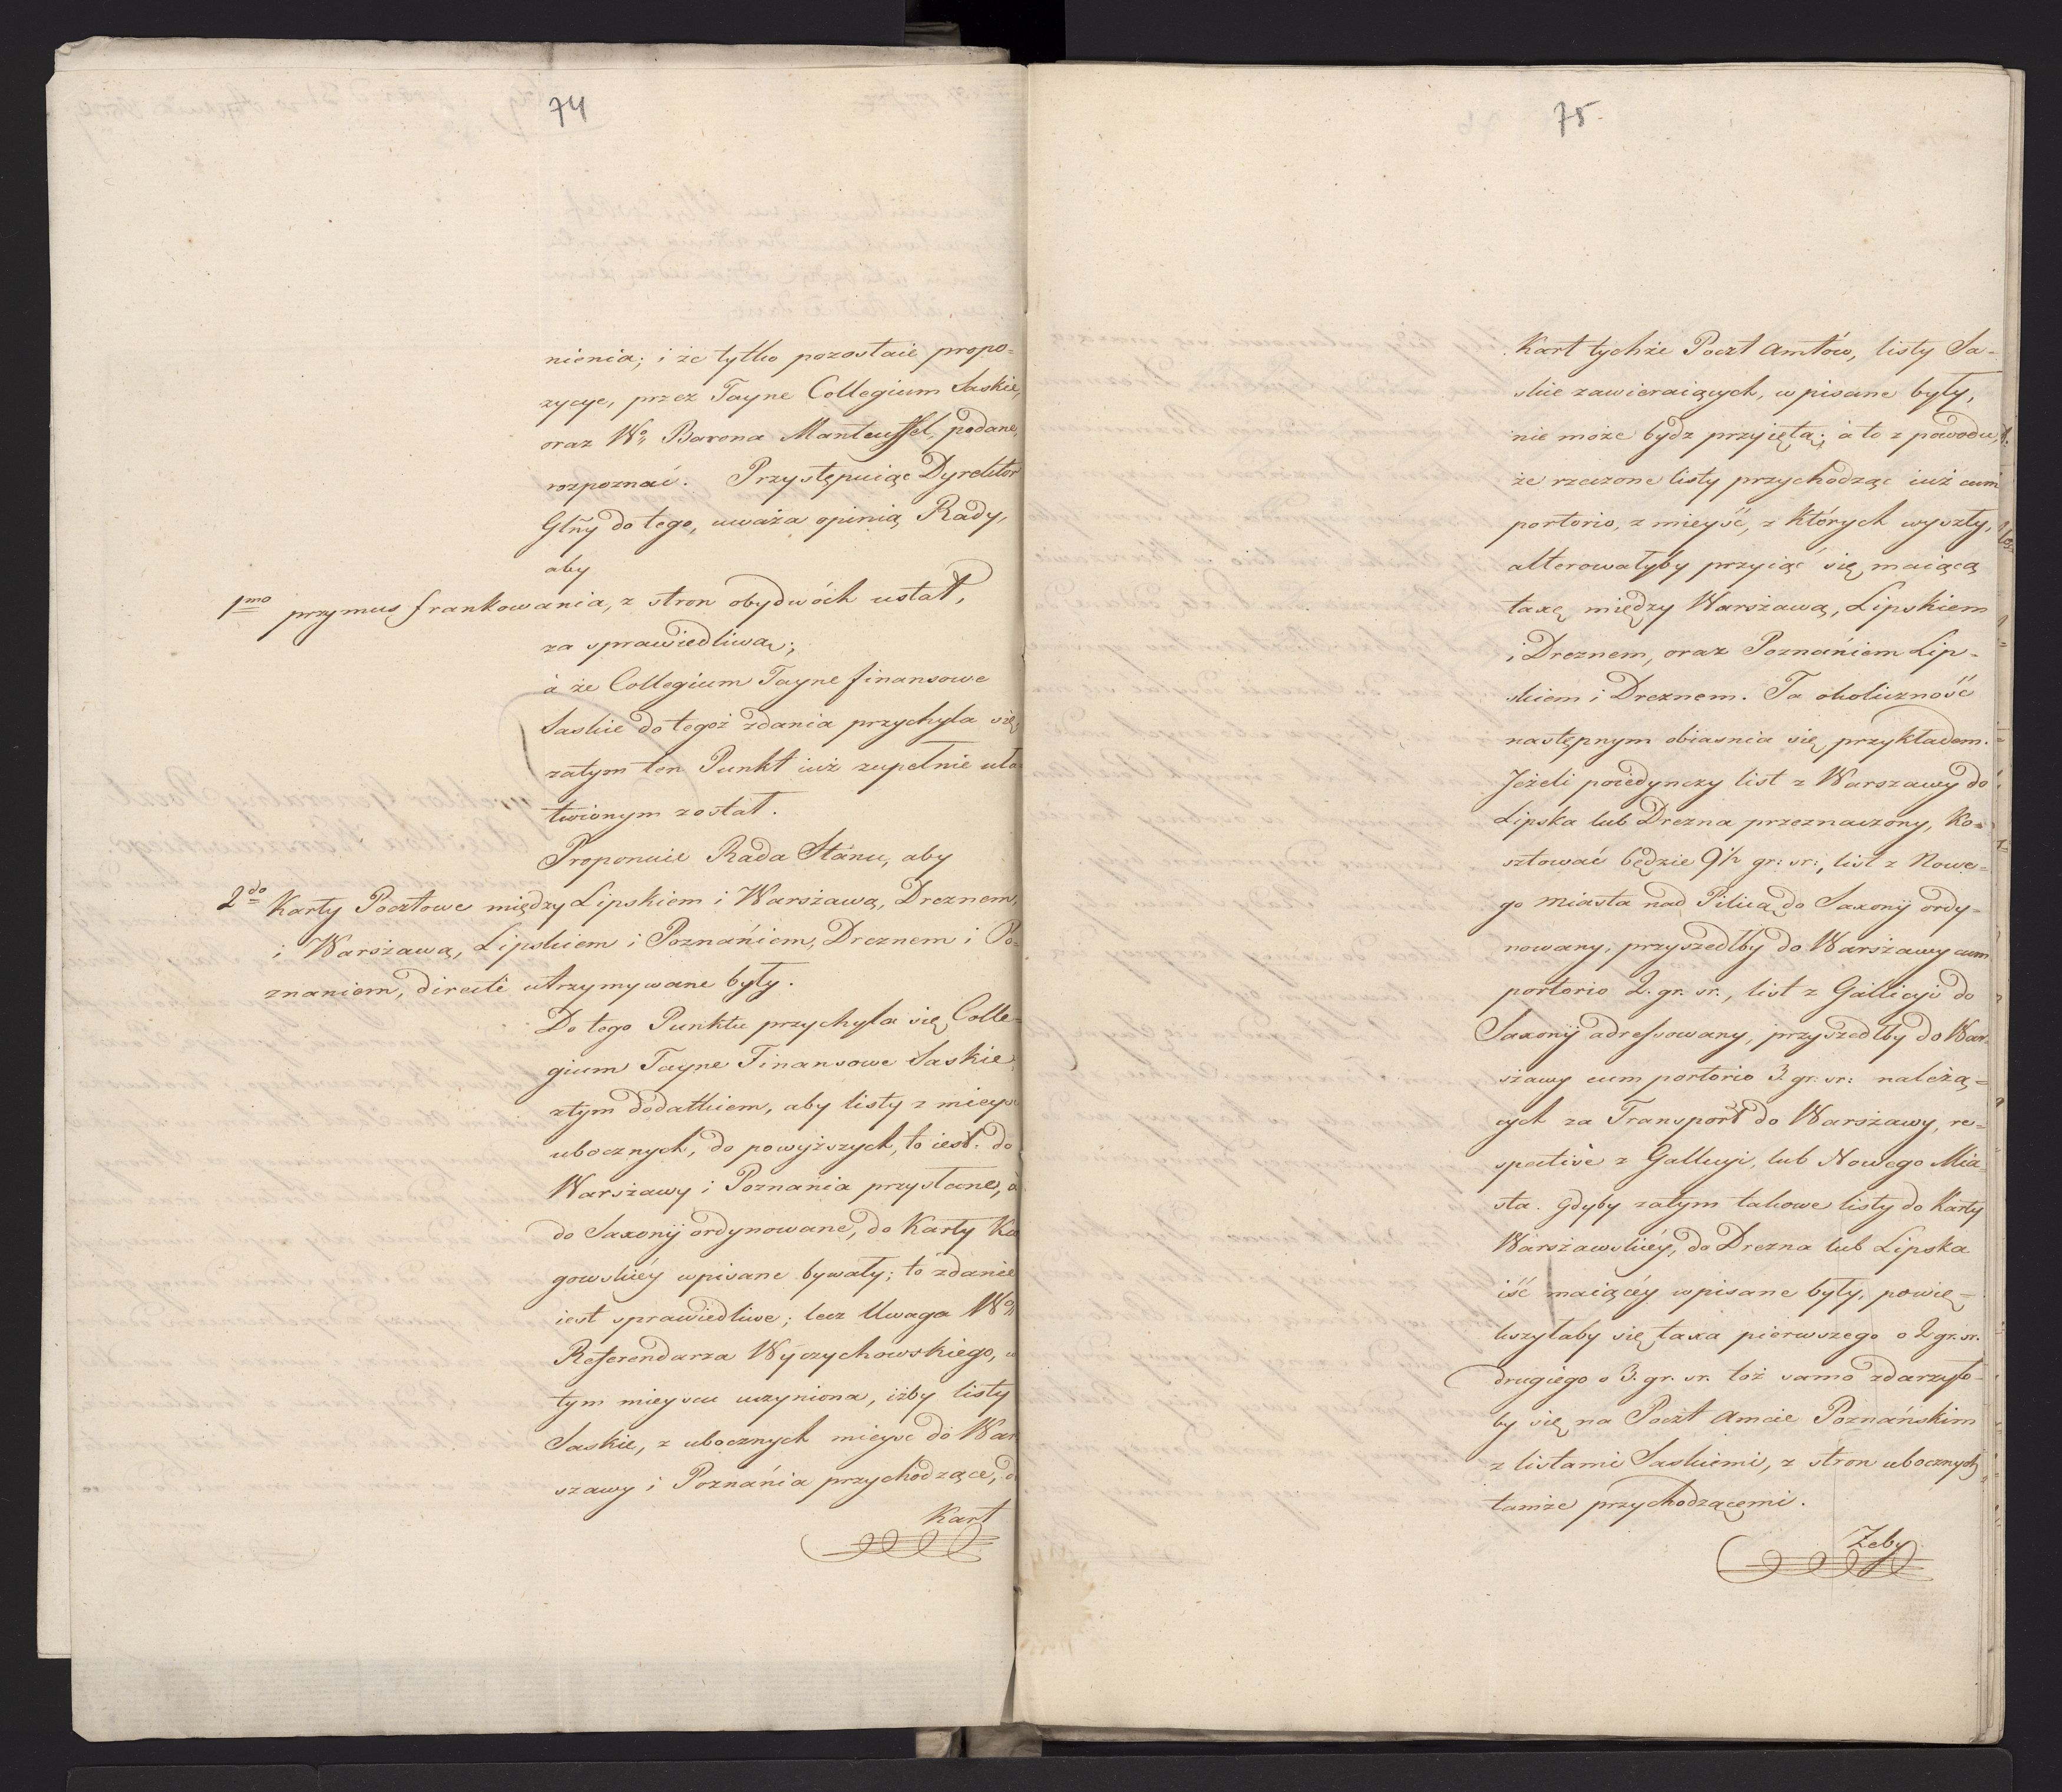 74
nienia; i że tylko pozostaie propo=
zycye, przez Tayne Collegium Saskie,
oraz Wo Barona Manteuffel, podane,
rozpoznać. Przystępuiąc Dyrektor
Glny do tego, uważa opinią Rady,
aby
1mo przymus frankowania, z stron obydwóch ustał,
za sprawiedliwą;
à że Collegium Tayne finansowe
Saskie do tegoż zdania przychyla się
zatym ten Punkt iuż zupełnie uła
twionym został.
Proponuie Rada Stanu, aby
2do Karty Pocztowe między Lipskiem i Warszawą, Dreznem,
i Warszawą, Lipskiem i Poznaniem, Dreznem i Po=
znaniem, directé utrzymywane były.
Do tego Punktu przychyla się Colle=
gium Tayne Finansowe Saskie,
ztym dodatkiem, aby listy z mieysc
ubocznych, do powyższych, to iest: do
Warszawy i Poznania przysłane, à
do Saxonij ordynowane, do Karty Ka
gowskiéy wpisane bywały; to zdanie
iest sprawiedliwe; lecz Uwaga Wo
Referendarza Wyczychowskiego, w
tym mieyscu uczyniona, iżby listy
Saskie, z ubocznych mieysc do War
szawy i Poznánia przychodzące, d
Kart
75.
Kart tychże Poczt amtów, listy Sa=
skie zawieraiących, wpisane były,
nie może bydz przyiętą; à to z powodu,
że rzeczone listy przychodząc iuż cum
portorio, z mieysć, z których wyszły,
alterowałyby przyiąć się maiącą
taxę między Warszawą, Lipskiem
i Dreznem, oraz Poznániem Lip=
skiem i Dreznem. Ta okoliczność
następnym obiasnia się przykładem.
Jeżeli poiedynczy list z Warszawy do
Lipska lub Drezna przeznaczony, Ko=
sztować będzie 9½ gr: sr:, list z Nowe=
go Miasta nad Pilicą do Saxonij ordy=
nowany, przyszedłby do Warszawy cum
portorio 2. gr. sr., list z Gallicyi do
Saxonij adressowany, przyszedłby do War=
szawy cum portorio 3. gr: sr: należą=
cych za Transport do Warszawy, re=
spective z Gallicyi, lub Nowego Mia
sta. Gdyby zatym takowe listy do Karty
Warszawskiéy, do Drezna lub Lipska
iść maiącéy wpisane były, powię=
kszyłaby się taxa pierwszego o 2 gr. sr.
drugiego o 3. gr. sr. toż samo zdarzyło=
by się na Poczt amcie Poznańskim
z listami Saskiemi, z stron ubocznych
tamże przychodzącemi.
Żeby